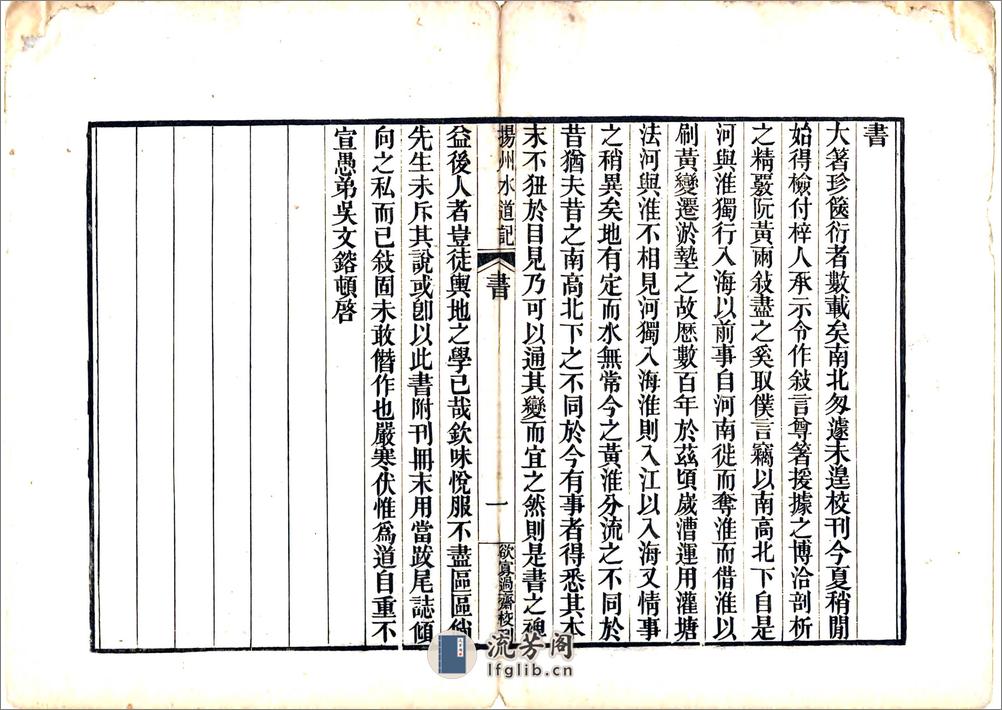 書
大著珍篋衍者數載矣南北匆遽未遑校刊今夏稍閒
始得檢付梓人承示令作敍言尊箸援據之博洽剖析
之精覈阮黃兩敍盡之奚取僕言竊以南高北下自是
河與淮獨行入海以前事自河南徙而奪淮而借淮以
刷黃變遷淤墊之故歷數百年於茲頃歲漕運用灌塘
法河與淮不相見河獨入海淮則入江以入海又情事
之稍異矣地有定而水無常今之黃淮分流之不同於
昔猶夫昔之南高北下之不同於今有事者得悉其本
末不狃於目見乃可以通其變而宜之然則是書之裨
揚州水道記
書
一
欲寡過齋校刊
益後人者豈徒輿地之學已哉欽味悅服不盡區區儻
先生未斥其說或卽以此書附刊冊末用當跋尾誌傾
向之私而已敍固未敢僭作也嚴寒伏惟爲道自重不
宣愚弟吳文鎔頓啓
流芳阁
lfglib.cn